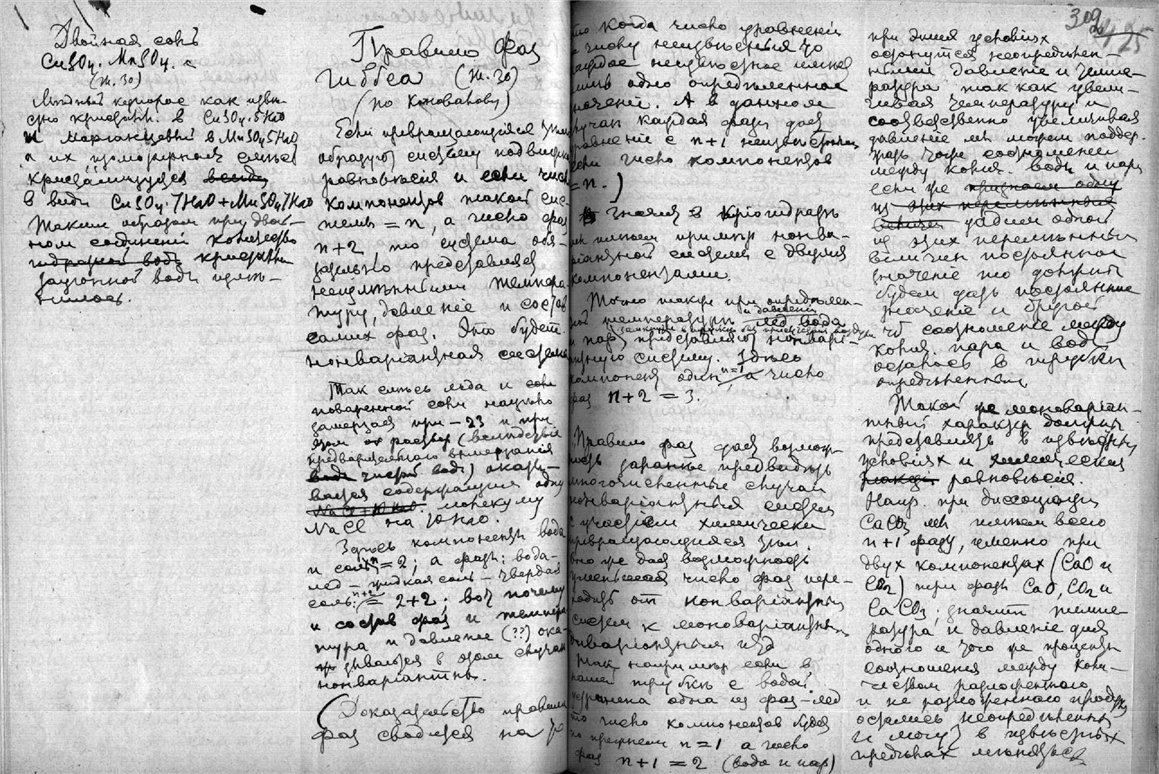 Двойная соль
CuSO4. MnSO4.
(т. 30)
Медный купорос как изве-
стно кристалл. в CuSO4 5H2O
и марганцевый в MnSO4 5H2O
а их изоморфная смесь
кристаллизуется всегда
в виде CuSO4·7H2O + MnSO4 7H2O
Таким образом при двой-
ном соединении количество
гидратной воды кристалли-
зационной воды изме-
нилось.
Правило фаз
Гиббса (т. 30)
(по Коновалову)
Если превращающіяся тѣла
образуют систему подвижн.
равновѣсія и если число
компонентов такой сис-
темы = n, а число фаз
n+2 то система обя-
зательно представляет
неизмѣнными темпера-
туру, давленіе и состав
самих фаз. Это будет
нонваріантная система
Так смесь льда и соли
поваренной соли нацело
замерзает при -23 и при
этом раствор (вследствіе
предварительного вымерзанія
воды чистой воды) оказы-
вается содержащим одну
NaCl + 10 H2O молекулу
NaCl на 10 H2O.
Здесь компоненты вода
и соль n = 2; а фазы: вода-
лед - жидкая соль - твердая
соль: n+2 = 2+2; вот почему
и состав фаз и темпера-
тура и давление (??) ока-
зываются в этом случае
нонваріантны.
(Доказательство правила
фаз сводится на
то когда число уравнений
= числу неизвестных то
каждое неизвестное имеет
лишь одно определенное
значение. А в данном
случае каждая фаза дает
уравнение с n+1 неизвестными
если число компонентов
= n.)
Значит в кріогидратах
мы имеем пример нонва-
ріантной системы с двумя
компонентами.
Точно также при определен-
ной температуре и давлении лед вода
и пар представляют нонварі-
антную систему. Здесь
компонент один n=1, а число
фаз n+2 = 3.
Правило фаз дает возмож-
ность заранее предвидеть
многочисленные случаи
нонваріантных систем
с участием химически
превращающихся тел.
Оно же дает возможность
уменьшая число фаз пере-
ходить от нонваріантных
систем к моноваріантн.
диваріантным и т.д.
Так например если в
нашей трубке с водой
устранена одна из фаз - лед
то число компонентов будет
по прежнем n=1 а число
фаз n+1 = 2 (вода и пар)
309
25
при этих условіях
останутся неопределен-
ными давление и темпе-
ратура так как увели-
чивая температуру и
соответственно увеличивая
давление мы можем поддер-
жать тоже соотношение
между колич. воды и пара
если же признаем одну
из этих переменных
величин дадим одной
из этих переменных
величин постоянное
значение то должны
будем дать постоянное
значение и другой
чтоб соотношение между
колич. пара и воды
осталось в трубке
определенным
Такой же моноваріан-
тный характер должны
представлять в известных
условіях и химическія
равновѣсія.
Напр. при диссоціации
CaCO3 мы имеем всего
n+1 фазу, именно при
двух компонентах (CaO и
CO2) три фазы CaO, CO2 и
CaCO3, значит темпе-
ратура, и давленіе для
одного и того же процентн.
соотношения между коли-
чеством разложенного
и не разложенного продукта
остались неопределенны
и могут в известных
пределах меняться